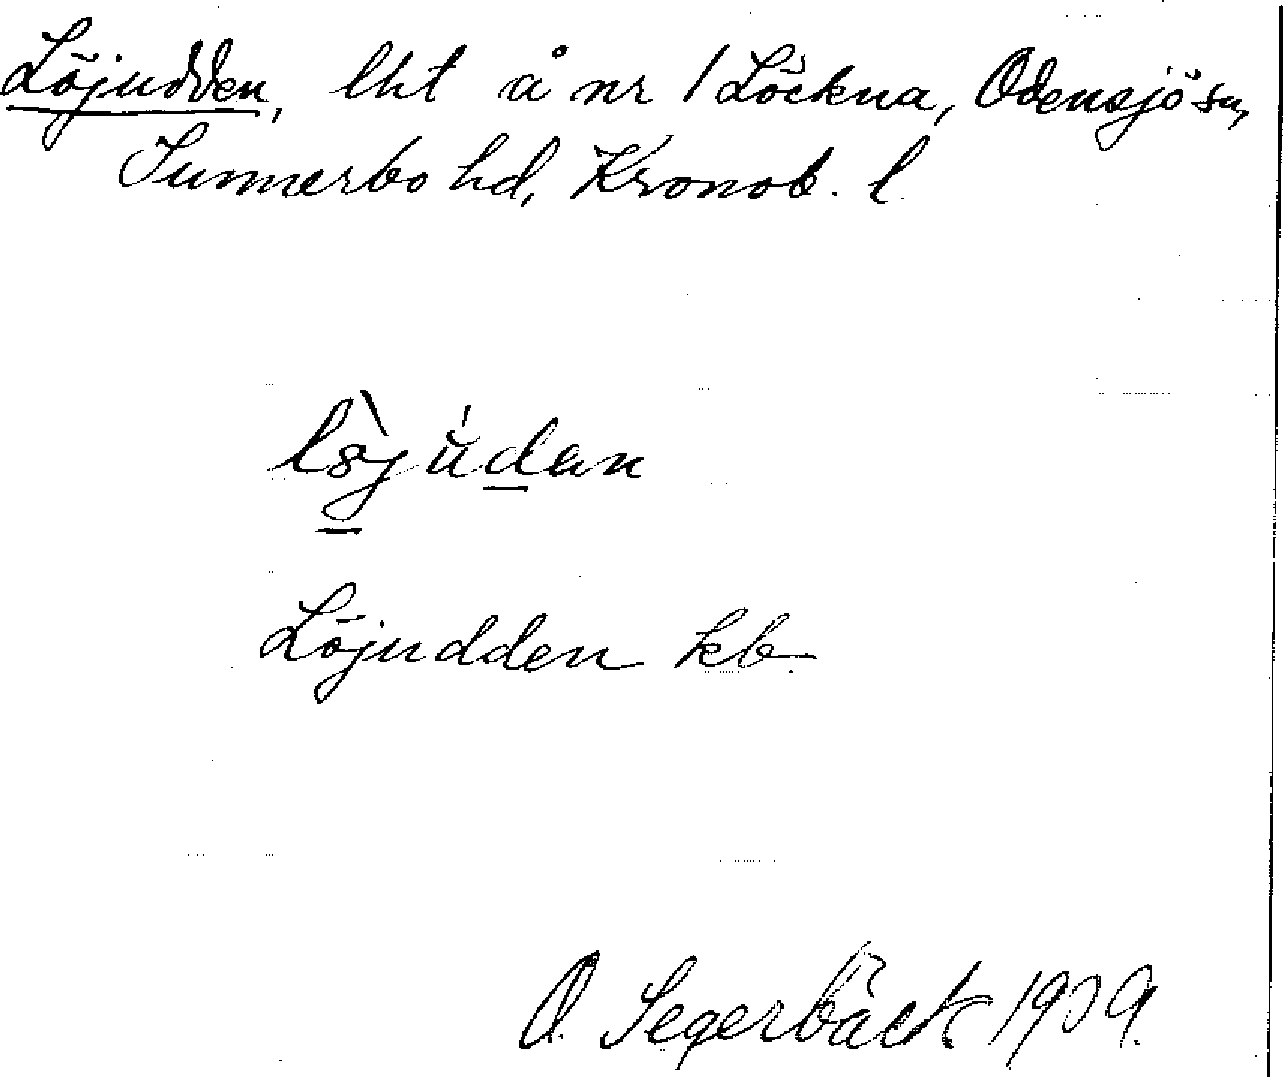 Löjudden, lht å nr 1 Löckna, Odensjö sn,
Sunnerbo hd, Kronob. l.
Löjudden kb.
O. Segerbäck 1939.